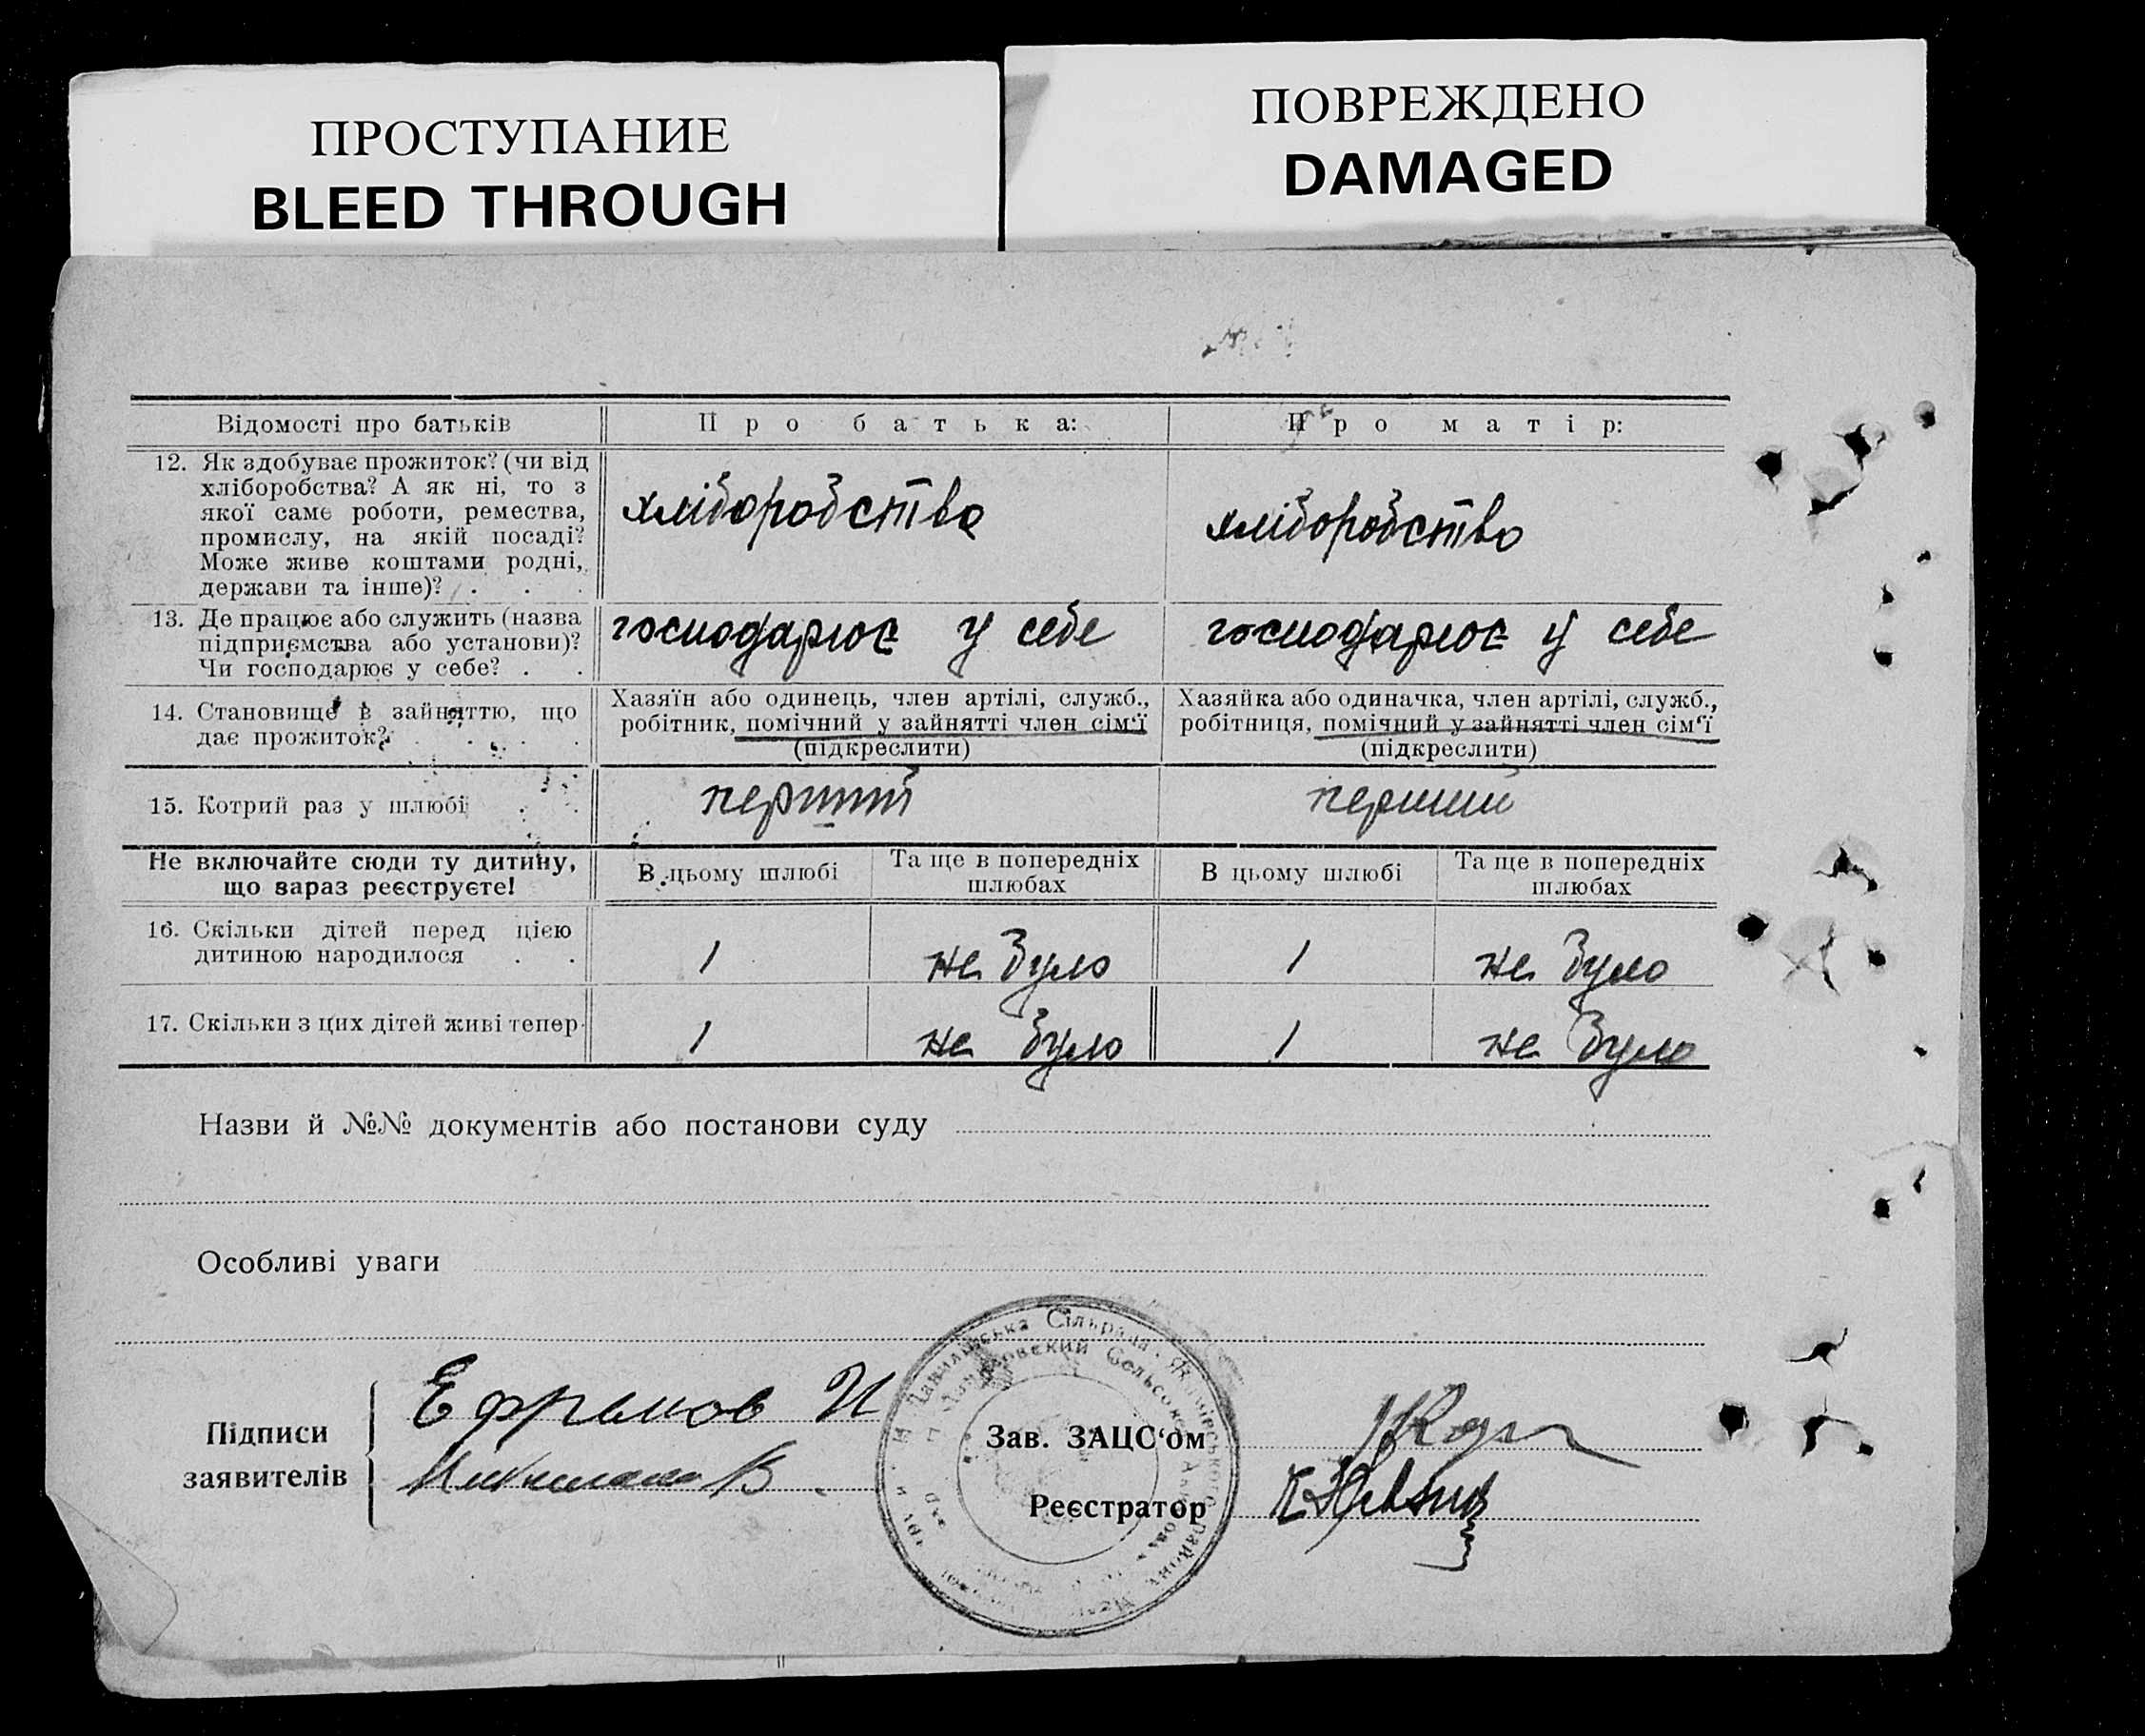 ПРОСТУПАНИЕ
BLEED THROUGH
ПОВРЕЖДЕНО
DAMAGED
Відомості про батьків
Про батька:
Про матір:
12. Як здобуває прожиток? (чи від
хліборобства? А як ні, то з
якої саме роботи, ремества,
промислу, на якій посаді?
Може живе коштами родні,
держави та інше)? . . .
хліборобства
хліборобство
13. Де працює або служить (назва
підприємства або установи)?
Чи господарює у себе? . .
господарює у себе
господарює у себе
14. Становище в зайняттю, що
дає прожиток? . . . .
Хазяїн або одинець, член артілі, служб.,
робітник, помічний у зайнятті член сім‘ї
(підкреслити)
Хазяйка або одиначка, член артілі, служб.,
робітниця, помічний у зайнятті член сім‘ї
(підкреслити)
15. Котрий раз у шлюбі . .
перший
перший
Не включайте сюди ту дитину,
що зараз реєструєте!
В цьому шлюбі
Та ще в попередніх
шлюбах
В цьому шлюбі
Та ще в попередніх
шлюбах
16. Скільки дітей перед цією
дитиною народилося . .
1
не було
1
не було
17. Скільки з цих дітей живі тепер
1
не було
1
не було
Назви й №№ документів або постанови суду
Особливі уваги
Підписи
заявителів
Ефремов И
Зав. ЗАЦС‘ом
Реєстратор
Сільрада